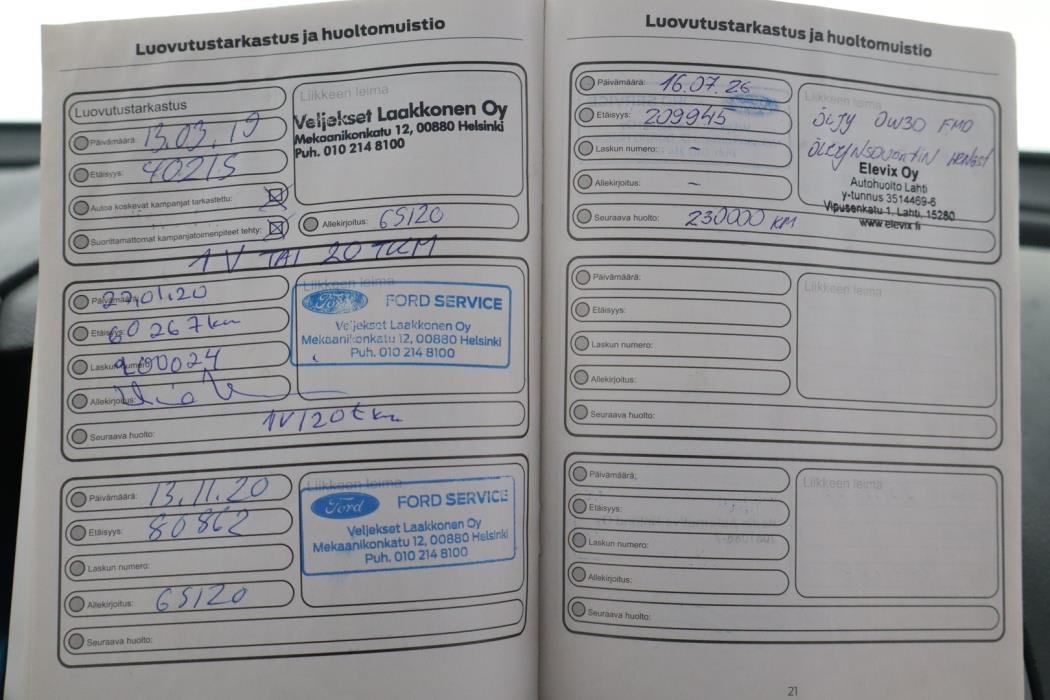 Luovutustarkastus ja huoltomuistio
Luovutustarkastus
Päivämäärä: 13.03.19
Etäisyys: 40215
Autoa koskevat kampanjat tarkastettu:
Suorittamattomat kampanjatoimenpiteet tehty:
Liikkeen leima
Veljekset Laakkonen Oy
Mekaanikonkatu 12, 00880 Helsinki
Puh. 010 214 8100
Allekirjoitus: 65120
1V TAI 20 TKM
Päivämäärä: 22.01.20
Etäisyys: 60267 km
Laskun numero: 200024
Allekirjoitus:
Seuraava huolto: 1V/20tkm
Liikkeen leima
Ford FORD SERVICE
Veljekset Laakkonen Oy
Mekaanikonkatu 12, 00880 Helsinki
Puh. 010 214 8100
Päivämäärä: 13.11.20
Etäisyys: 80862
Laskun numero:
Allekirjoitus: 65120
Seuraava huolto:
Liikkeen leima
Ford FORD SERVICE
Veljekset Laakkonen Oy
Mekaanikonkatu 12, 00880 Helsinki
Puh. 010 214 8100
Luovutustarkastus ja huoltomuistio
Päivämäärä: 16.07.26
Etäisyys: 209945
Laskun numero: –
Allekirjoitus: –
Seuraava huolto: 230000 KM
Liikkeen leima
ÖLJY 0W30 FMD
ÖLJYNSUODATIN
Elevix Oy
Autohuolto Lahti
y-tunnus 3514469-6
Vipusenkatu 1, Lahti, 15280
www.elevix.fi
Päivämäärä:
Etäisyys:
Laskun numero:
Allekirjoitus:
Seuraava huolto:
Liikkeen leima
Päivämäärä:
Etäisyys:
Laskun numero:
Allekirjoitus:
Seuraava huolto:
Liikkeen leima
21